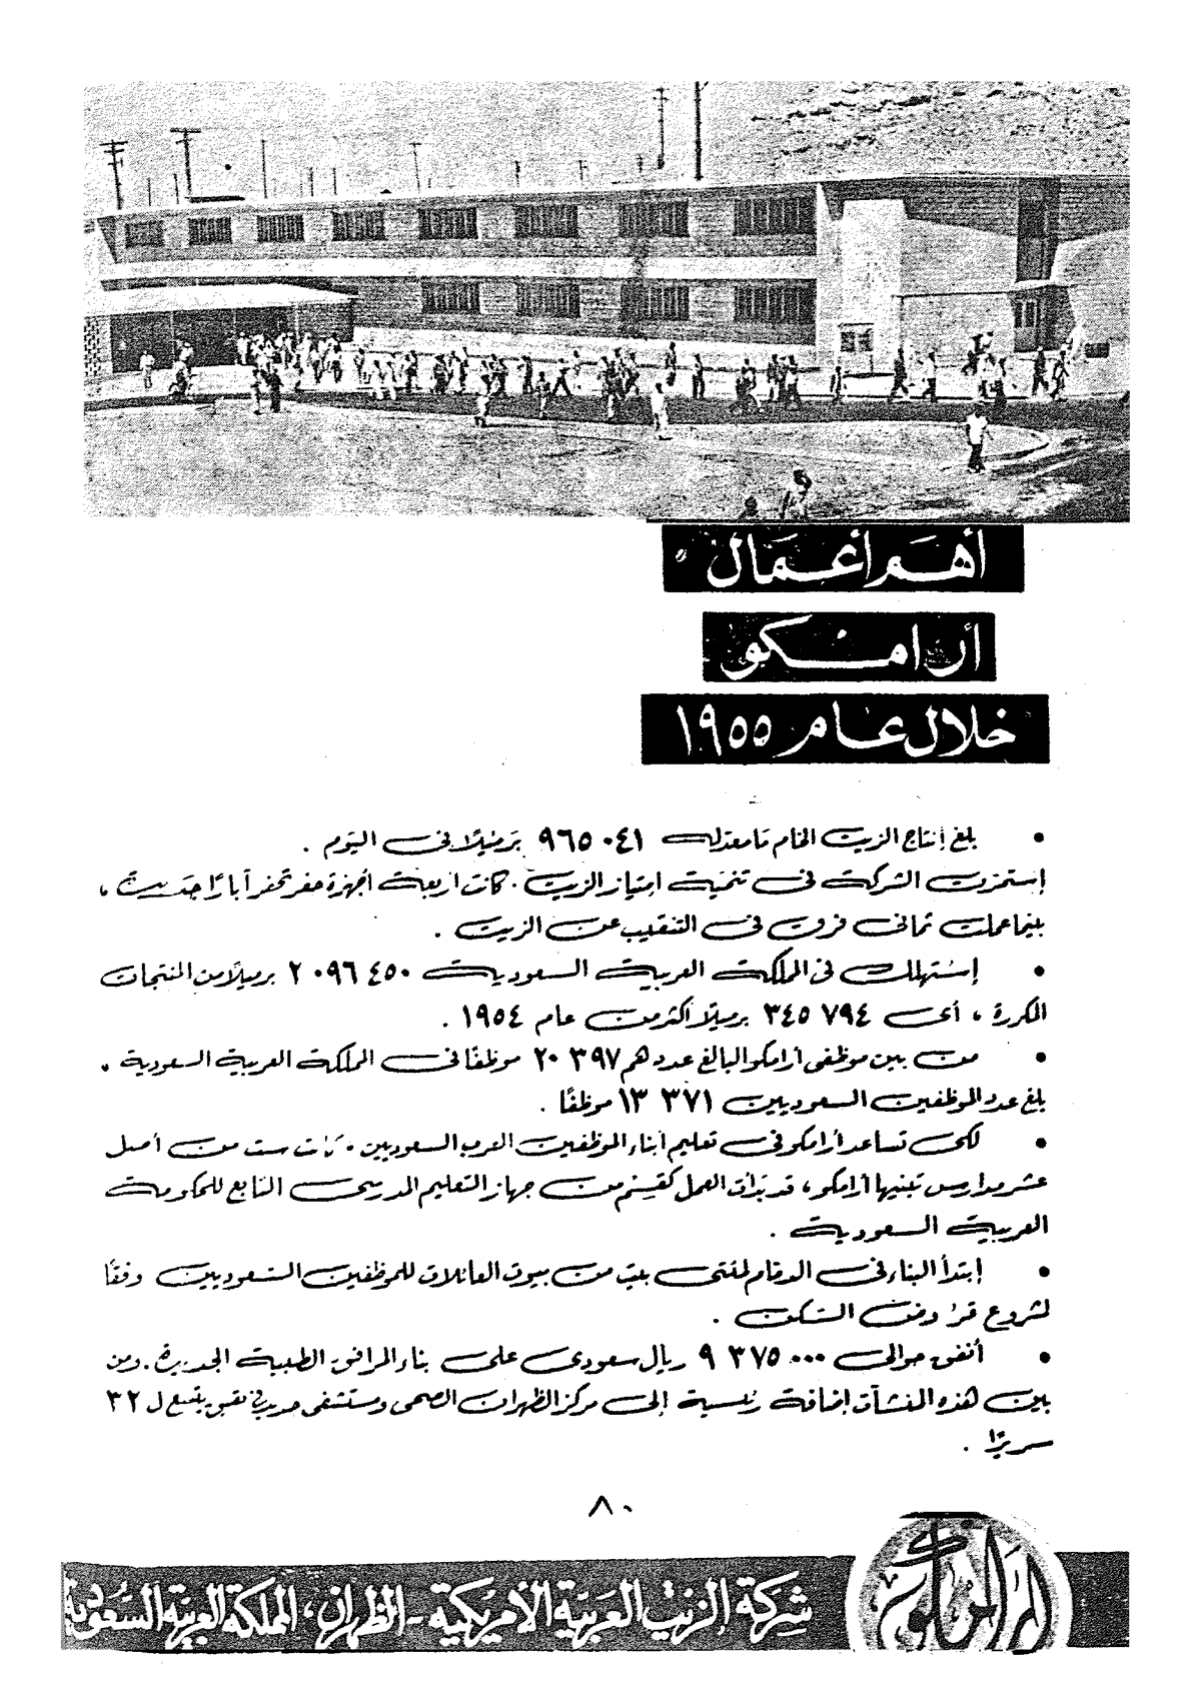 أهم أعمال
أرامكو
خلال عام ١٩٥٥
• بلغ إنتاج الزيت الخام ما معدله ٩٦٥٠٤١ برميلاً فى اليوم .
إستمرت الشركة فى تنمية امتياز الزيت . كانت أربعة أجهزة حفر تحفر آباراً جديدة ،
بينما عملت ثمانى فرق فى التنقيب عن الزيت .
• إستهلك فى المملكة العربية السعودية ٢٠٩٦٤٥٠ برميلاً من المنتجات
المكررة ، أى ٣٤٥٧٩٤ برميلاً أكثر من عام ١٩٥٤ .
• من بين موظفى أرامكو البالغ عددهم ٢٠٣٩٧ موظفاً فى المملكة العربية السعودية ،
بلغ عدد الموظفين السعوديين ١٣٣٧١ موظفاً .
• لكى تساعد أرامكو فى تعليم أبناء الموظفين العرب السعوديين ، ست من أصل
عشر مدارس تبنيها أرامكو ، قد بدأت العمل كقسم من جهاز التعليم المدرسى التابع للحكومة
العربية السعودية .
• إبتدأ البناء فى الدمام لمئتى بيت من بيوت العائلات للموظفين السعوديين وفقاً
لمشروع السكن .
• أنفق حوالى ٩٣٧٥٠٠٠ ريال سعودى على بناء المرافق الطبية الجديدة . ومن
بين هذه المنشآت إضافة رئيسية إلى مركز الظهران الصحى ومستشفى جديد فى بقيق يتسع ل ٣٢
سريراً .
٨٠
أرامكو
شركة الزيت العربية الأمريكية - الظهران ، المملكة العربية السعودية